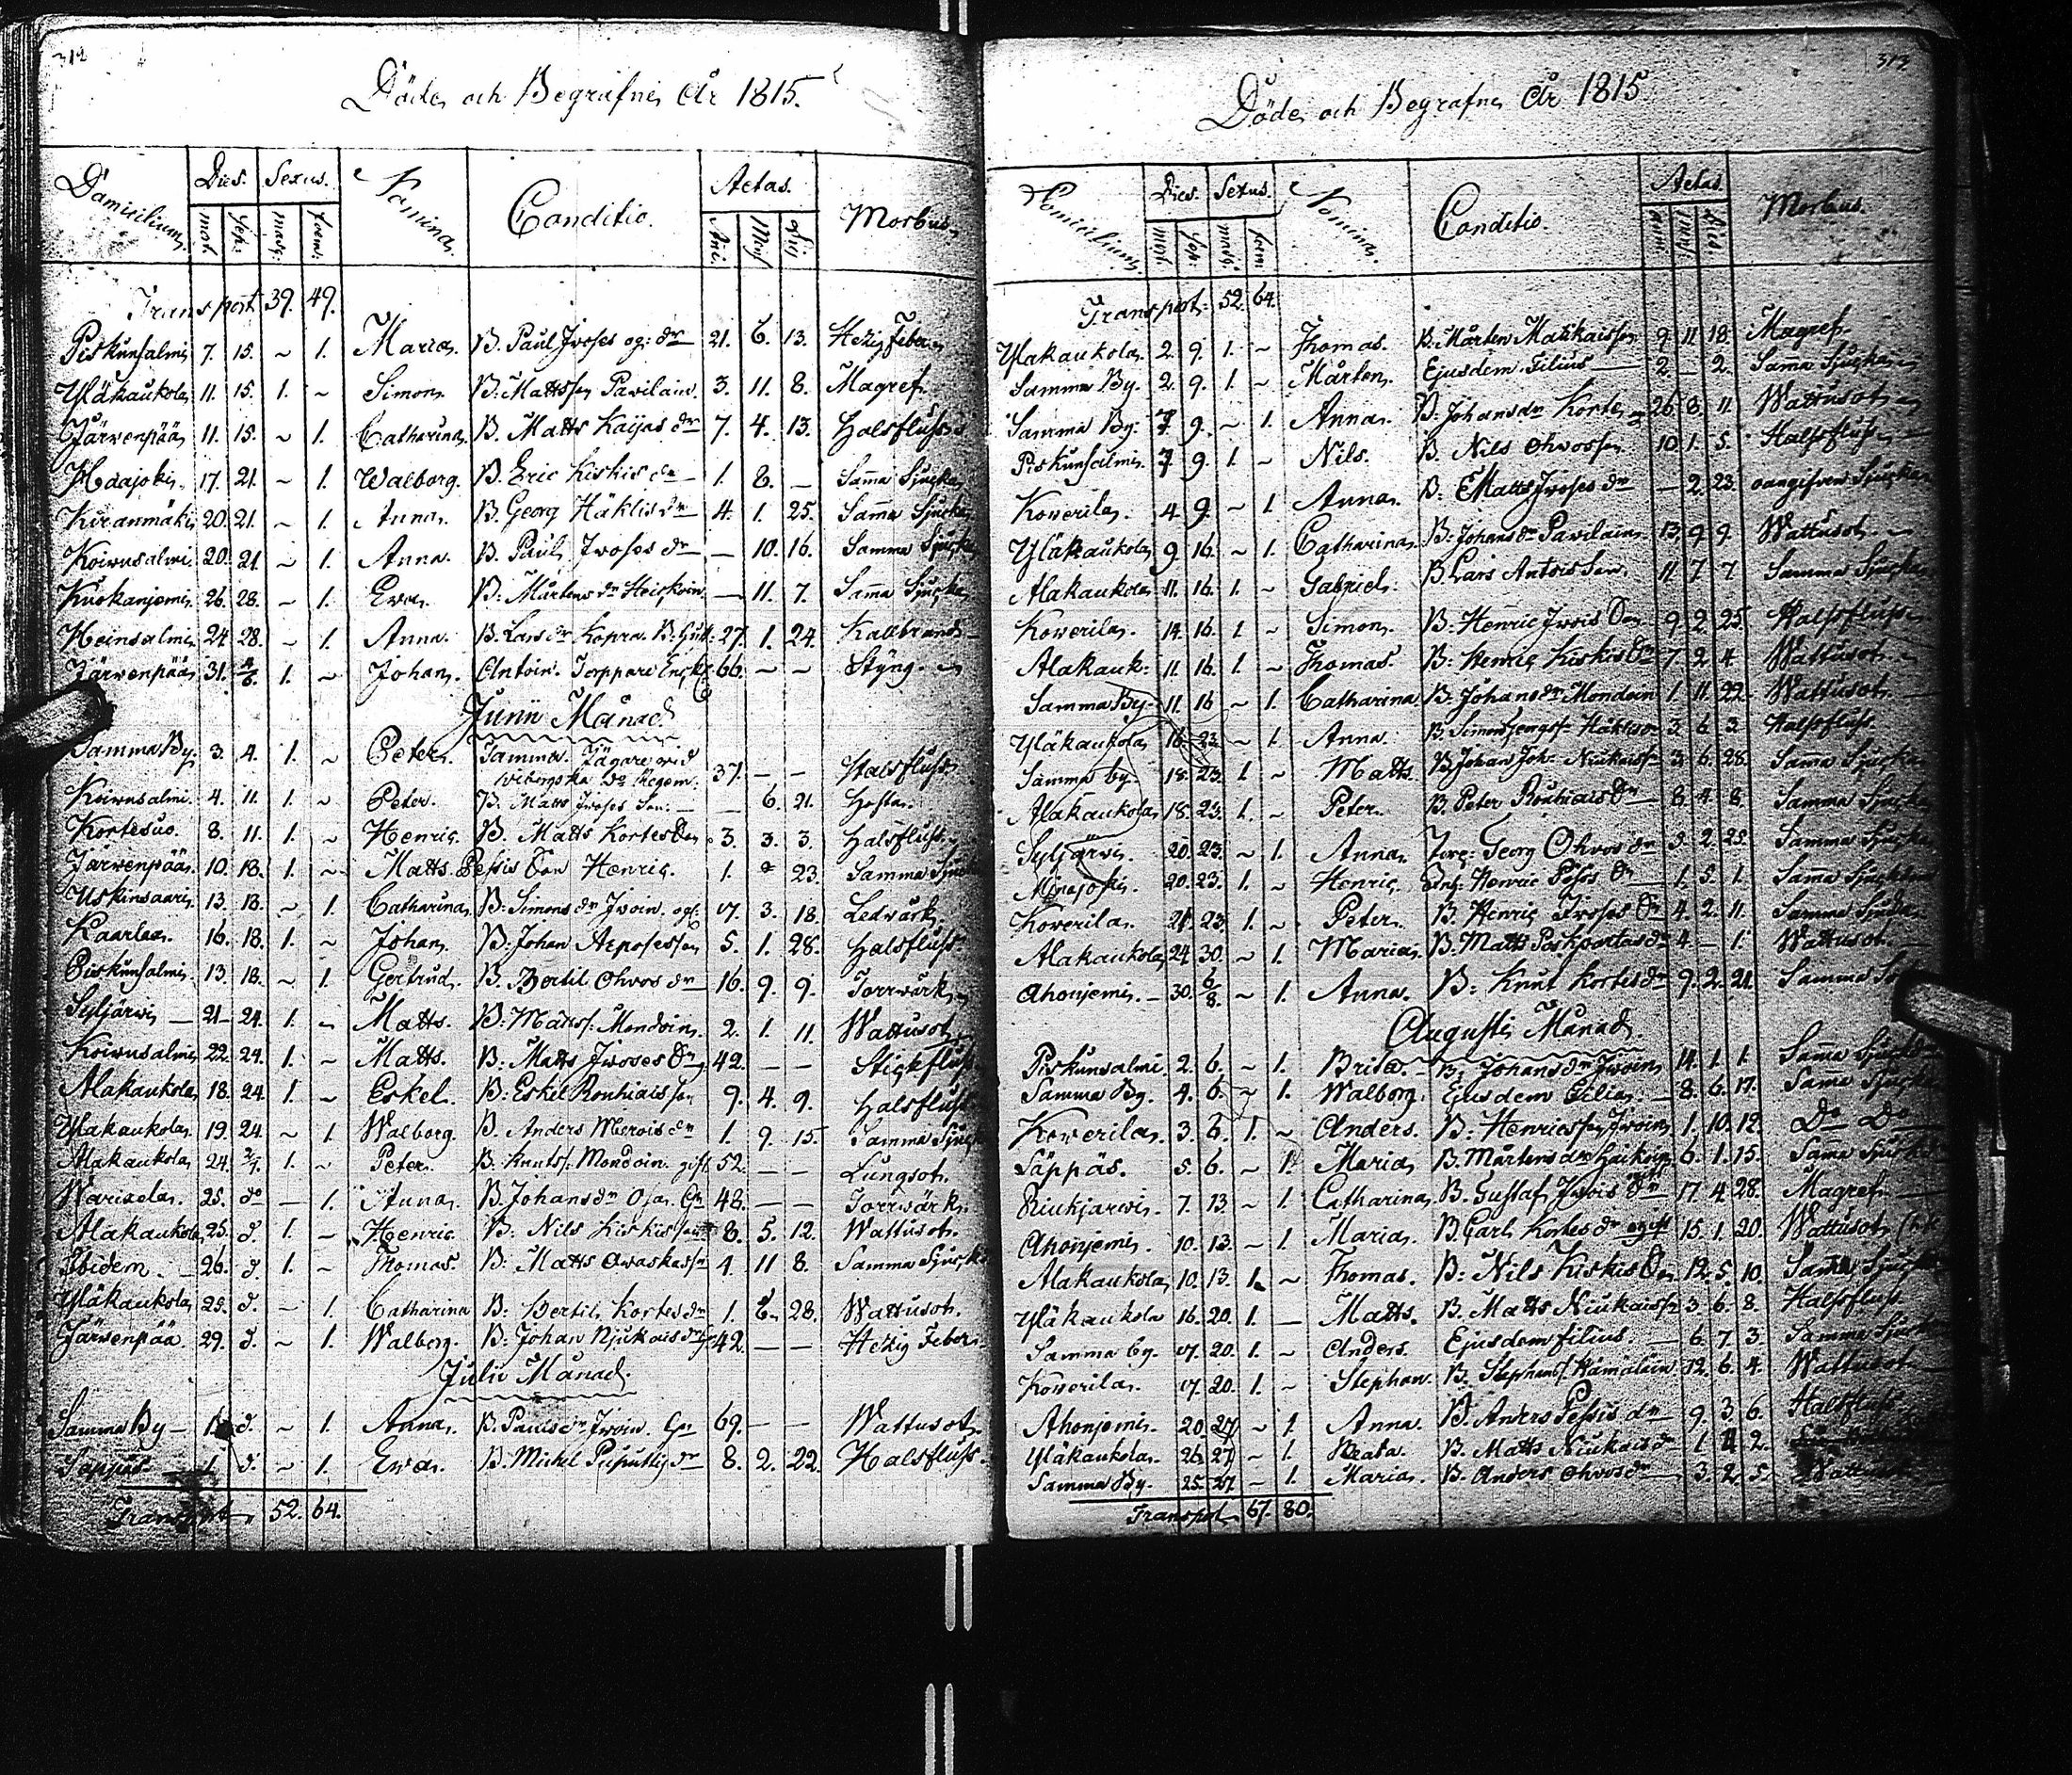 312
Döde och Begrafne År 1815.
Domicilium. Dies. Sexus. Nomina. Conditio. Aetas. Morbus.
mort. sep. masc. foem. Anni. Mens. Dies
Transport 39. 49.
Piskunsalmi 7. 15. ~ 1. Maria. B. Paul Iwoses og: dr 21. 6. 13. Hezig Feber
Yläkaukola 11. 15. 1. ~ Simon. B. Mattssen Pavilain. 3. 11. 8. Magref.
Järwenpää 11. 15. ~ 1. Catharina. B. Matts Kaijas dr 7. 4. 13. Halsfluss
17. 21. ~ 1. Walborg. B. Eric Kiskis dr 1. 8. — Samma Sjucka
20. 21. ~ 1. Anna. B. Georg Häklis dr 4. 1. 25. Samma Sjucka
Koiwusalmi 20. 21. ~ 1. Anna. B. Pauls Iwoses dr — 10. 16. Samma Sjucka
Kuokanjemi. 26. 28. ~ 1. Eva. B: Mårtens dr — 11. 7. Samma Sjucka
Heinsalmi 24. 28. ~ 1. Anna. B. Lars dr Kopra. 27. 1. 24. Kallbrand
Järwenpää 31. 4/6. 1. ~ Johan. Antoin. Torppare 66. — — Styng.
Junii Månad
Samma By 3. 4. 1. ~ Peter. Tamma. Jägare wid
Wiborgska Regem. 37. — — Halsfluss
Koiwusalmi 4. 11. 1. ~ Peter. B. Matts Iwoses Son. — 6. 21. Hosta.
Kortesuo. 8. 11. 1. ~ Henric. B. Matts Kortes Son. 3. 3. 3. Halsfluss.
Järwenpää. 10. 18. 1. ~ Matts. Pessis Son Henric. 1. 23. Samma Sjuck
Uskinsaari. 13. 18. ~ 1. Catharina. B: Simons dr Iwoin. 17. 3. 18. Ledwärk.
Kaarlea. 16. 18. 1. ~ Johan. B: Johan 5. 1. 28. Halsfluss.
Piskunsalmi. 13. 18. ~ 1. Gertrud. B. Bertil Ohvos dr 16. 9. 9. Torrwärk.
Syljärwi — 21. 24. 1. ~ Matts. B: Mattss. Mondoin. 2. 1. 11. Wattusot.
Koiwusalmi 22. 24. 1. ~ Matts. B: Matts Iwoses Son 42. — — Stickfluss
Alakaukola 18. 24. 1. ~ Eskel. B: Eskel Ronhiais son 9. 4. 9. Halsfluss
Yläkaukola. 19. 24. ~ 1. Walborg. B. Anders Merois dr 1. 9. 15. Samma Sjuck
Alakaukola 24. 2/7. 1. ~ Peter. B. Knuts. Mondoin. gift 52. — — Lungsot.
Warisela. 25. do — 1. Anna. B. Johansdr Ojas 48. — — Torrwärk.
Alakaukola 25. d. 1. — Henric. B: Nils Kiskis 8. 5. 12. Wattusot.
Ibidem. 26. d. 1. ~ Thomas. B: Matts Awaskas 4. 11 8. Samma Sjucka
Yläkaukola 25. d. — 1. Catharina B: Bertils Kortes dr 1. 6. 28. Wattusot.
Järwenpää. 29. d. ~ 1. Walborg. B. Johan Njukais dr 42. — — Hezig Feber.
Julii Månad.
Samma By — 1. d. ~ 1. Anna. B. Pauls dr Iwoin. 69. — — Wattusot.
Sappus 1. d. ~ 1. Eva. B. Michel Puputtis dr 8. 2. 22. Halsfluss.
Transport 52. 64.
313
Döde och Begrafne År 1815
Domicilium. Dies. Sexus. Nomina. Conditio. Aetas. Morbus.
mort. sep. masc. foem. Anni Mens. Dies.
Transport: 52. 64.
Yläkaukola. 2. 9. 1. ~ Thomas. B. Mårten 9. 11. 18. Magref.
Samma By. 2. 9. 1. ~ Mårten. Ejusdem Filius — 2. — 2. Samma Sjucka
Samma By. 7. 9. ~ 1. Anna. B: Johans dr Korte 26. 8. 11. Wattusot
Piskunsalmi. 7. 9. 1. ~ Nils. B. Nils Ohwosson 10. 1. 5. Halsfluss
Kowerila. 4. 9. ~ 1. Anna. B: Matts Iwoses dr — 2. 23. oangifwen Sjucka
Yläkaukola 9. 16. ~ 1. Catharina. B: Johans dr Pavilain 13. 9. 9. Wattusot
Alakaukola. 11. 16. 1. ~ Gabriel. B. Lars Antois Son. 11 7. 7. Samma Sjucka
Kowerila. 14. 16. 1. ~ Simon. B: Henric Iwois Son 9. 2. 25. Halsfluss
Alakauk: 11. 16. 1. ~ Thomas. B: Henric Kiskis Son 7. 2. 4. Wattusot.
Samma By. 11. 16 ~ 1. Catharina B. Johansdr Mondoin 1. 11. 22. Wattusot
Yläkaukola 16. 23. ~ 1. Anna. B. Simon 3. 6. 3. Halsfluss
Samma by. 18. 23. 1. ~ Matts. B. Johan Joh. 3. 6. 28. Samma Sjucka
Alakaukola 18. 23. 1. ~ Peter. B. Peter Ronhiais Son 8. 4. 8. Samma Sjucka
Syljärwi. 20. 23. ~ 1. Anna. Torp: Georg Ohvos dr 3. 2. 25. Samma Sjucka
20. 23. 1. ~ Henric. Henric 1. 5. 1. Samma Sjucka
Kowerila. 21. 23. 1. ~ Peter. B. Henric Iwoses Son 4. 2. 11. Samma Sjucka
Alakaukola 24. 30. ~ 1. Maria. B. Matts dr 4. — 1. Wattusot
Ahonjemi. — 30. 6/8. ~ 1. Anna. B: Knut Kortes dr 9. 2. 21. Samma
Augusti Månad.
Piskunsalmi. 2. 6. ~ 1. Brita. B: Johans dr Iwoin 14. 1. 1. Samma Sjuckd
Samma By. 4. 6. ~ 1. Walborg. Ejusdem Filia. — 8. 6. 17. Samma Sjucka
Kowerila. 3. 6. 1. ~ Anders. B: Henricss. Iwoin 1. 10. 12. Do Do
Säppäs. 5. 6. ~ 1. Maria. B. Mårtens dr 6. 1. 15. Samma Sjuckd
Riukjärwi. 7. 13. ~ 1. Catharina. B. Gustaf Iwois dr 17. 4. 28. Magref.
Ahonjemi. 10. 13. ~ 1. Maria. B. Carl Kortes dr ogift 15. 1. 20. Wattusot
Alakaukola 10. 13. 1. ~ Thomas. B: Nils Kiskis Son 12. 5. 10. Samma Sjuck
Yläkaukola 16. 20. 1. — Matts. B. Matts Niukais 3. 6. 8. Halsfluss
Samma by. 17. 20. 1. ~ Anders. Ejusdem filius. — 6. 7. 3. Samma Sjuck
Kowerila. 17. 20. 1. ~ Stephan. B. Stephans. Hämäläin 12. 6. 4. Wattusot
Ahonjemi. 20. 27. ~ 1. Anna. B. Anders Pessis dr 9. 3. 6. Halsfluss
Yläkaukola. 26. 27. ~ 1. Beata. B. Matts Niukais dr 1. 2.
Samma By. 25. 27. — 1. Maria. B. Anders Ohvos dr 3. 2. 5. Wattusot
Transport. 67. 80.